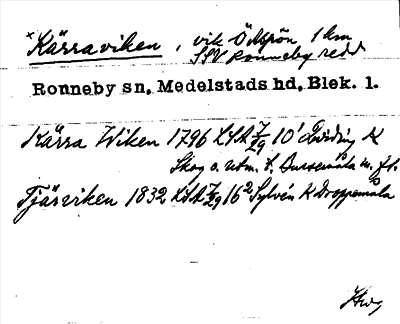 *Kärraviken, vik Östersjön, 1 km
SSV Ronneby redd
Ronneby sn, Medelstads hd, Blek. l.
Kärra Wiken 1796 LSA 7/29 10' K
Skog o. utm. t. m. fl.
Tjärviken 1832 LSA 7/29 16² Sylvén K Droppemåla